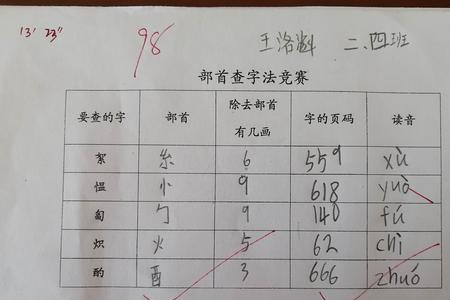 13' 23"
98
王洛 二.四班
部首查字法竞赛
要查的字 部首 除去部首有几画 字的页码 读音
絮 糸 6 559 xù
愠 忄 9 618 yuò
匐 勹 9 140 fú
炽 火 5 62 chì
酌 酉 3 666 zhuó